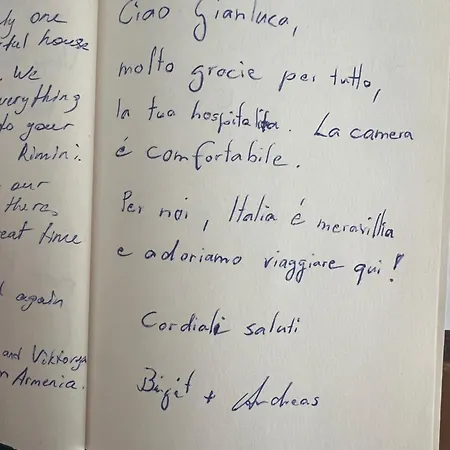 ly one
ful house
. We
verything
to your
Rimini.
our
there,
eat time
again
and Viktorya
n Armenia.
Ciao Gianluca,
molto grocie per tutto,
la tua hospitalita. La camera
é comfortabile.
Per noi, Italia é meravillia
e adoriamo viaggiare qui!
Cordiali saluti
Birgit + Andreas